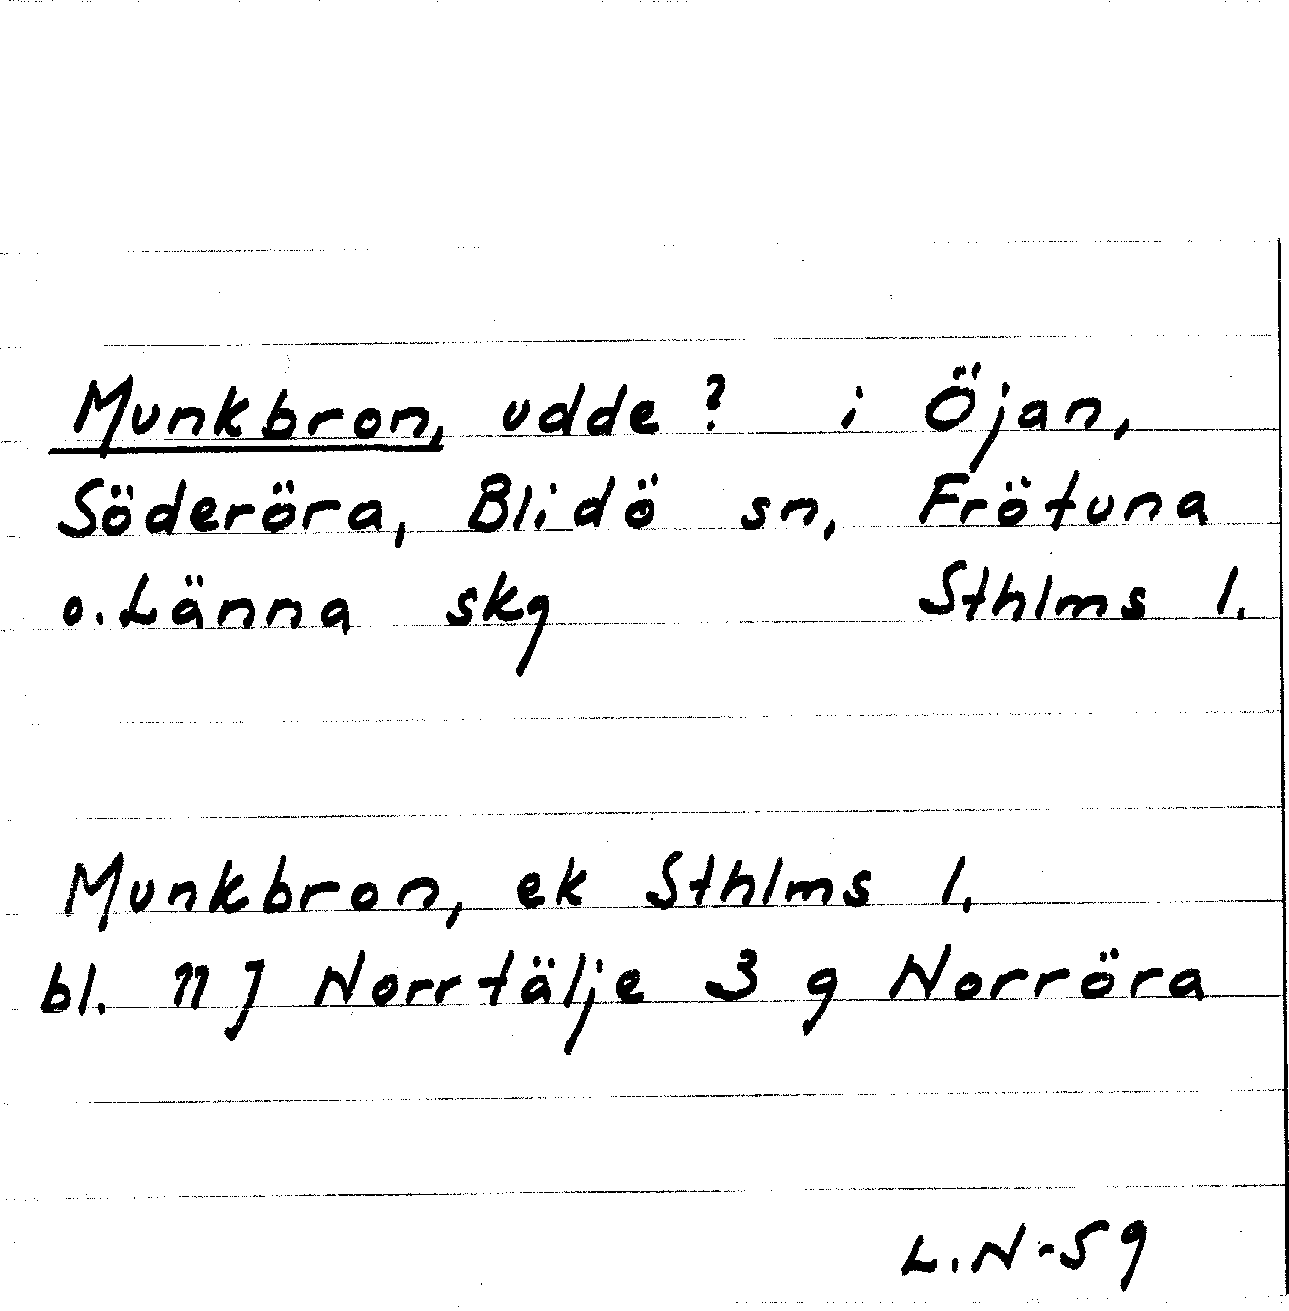 Munkbron, udde ? i Öjan,
Söderöra, Blidö sn, Frötuna
o. Länna skg Sthlms l.
Munkbron, ek Sthlms l.
bl. 11 J Norrtälje 3 g Norröra
L.N-59